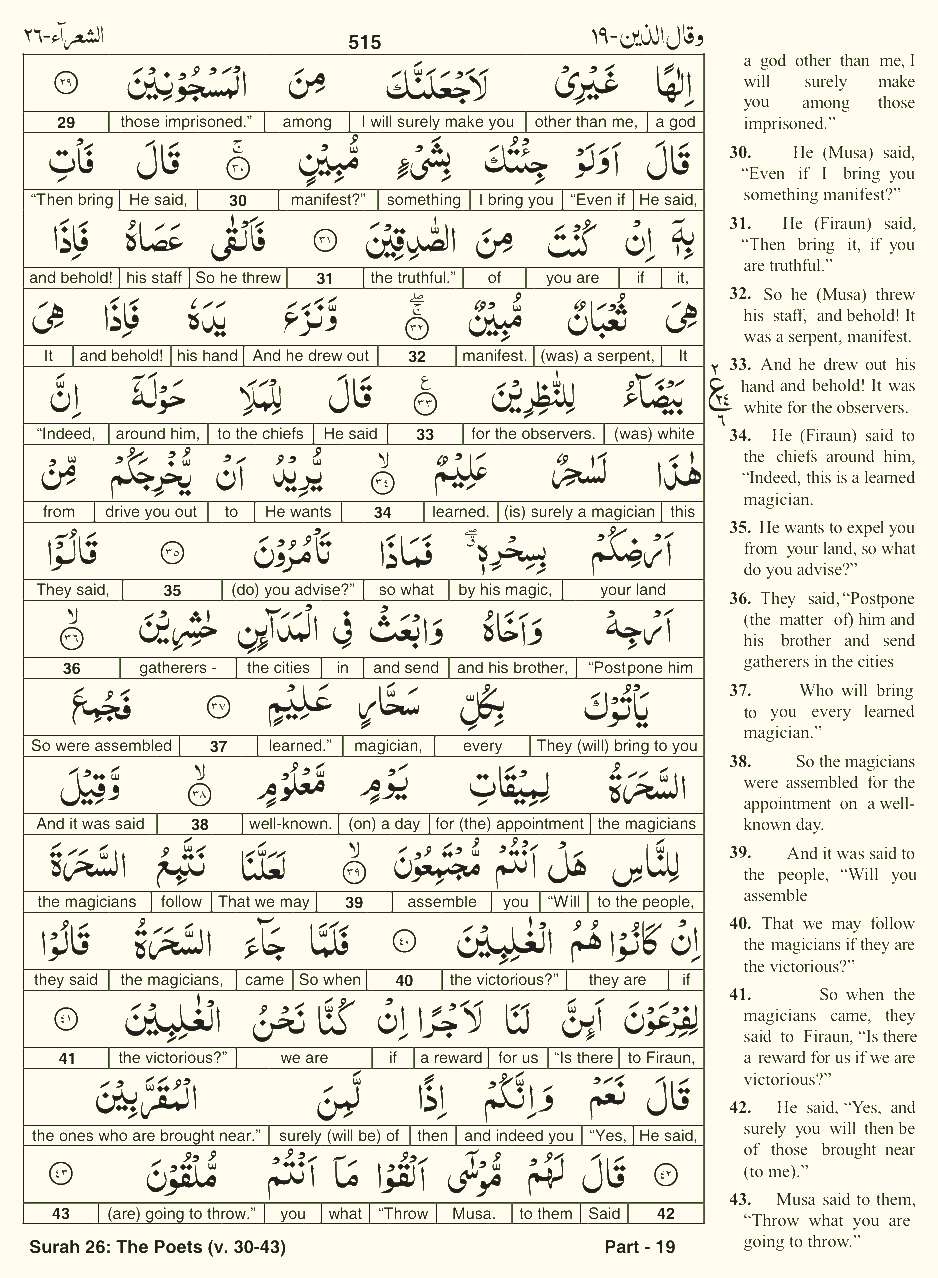 الشعرآء-٢٦
515
وقال الذين-١٩
اِلٰهًا غَيْرِىْ لَاَجْعَلَنَّكَ مِنَ الْمَسْجُوْنِيْنَ ٢٩
a god other than me, I will surely make you among those imprisoned.” 29
قَالَ اَوَلَوْ جِئْتُكَ بِشَىْءٍ مُّبِيْنٍ ۚ ٣٠ قَالَ فَاْتِ
He said, “Even if I bring you something manifest?” 30 He said, “Then bring
بِهٖۤ اِنْ كُنْتَ مِنَ الصّٰدِقِيْنَ ٣١ فَاَلْقٰى عَصَاهُ فَاِذَا
it, if you are of the truthful.” 31 So he threw his staff and behold!
هِىَ ثُعْبَانٌ مُّبِيْنٌ ۚۖ ٣٢ وَّنَزَعَ يَدَهٗ فَاِذَا هِىَ
It (was) a serpent, manifest. 32 And he drew out his hand and behold! It
بَيْضَآءُ لِلنّٰظِرِيْنَ ٣٣ ع قَالَ لِلْمَلَاِ حَوْلَهٗۤ اِنَّ
(was) white for the observers. 33 He said to the chiefs around him, “Indeed,
هٰذَا لَسٰحِرٌ عَلِيْمٌ ۙ ٣٤ يُّرِيْدُ اَنْ يُّخْرِجَكُمْ مِّنْ
this (is) surely a magician learned. 34 He wants to drive you out from
اَرْضِكُمْ بِسِحْرِهٖ ۖ فَمَاذَا تَاْمُرُوْنَ ٣٥ قَالُوْۤا
your land by his magic, so what (do) you advise?” 35 They said,
اَرْجِهْ وَاَخَاهُ وَابْعَثْ فِى الْمَدَآئِنِ حٰشِرِيْنَ ۙ ٣٦
“Postpone him and his brother, and send in the cities gatherers - 36
يَاْتُوْكَ بِكُلِّ سَحَّارٍ عَلِيْمٍ ٣٧ فَجُمِعَ
They (will) bring to you every magician, learned.” 37 So were assembled
السَّحَرَةُ لِمِيْقَاتِ يَوْمٍ مَّعْلُوْمٍ ۙ ٣٨ وَّقِيْلَ
the magicians for (the) appointment (on) a day well-known. 38 And it was said
لِلنَّاسِ هَلْ اَنْتُمْ مُّجْتَمِعُوْنَ ۙ ٣٩ لَعَلَّنَا نَتَّبِعُ السَّحَرَةَ
to the people, “Will you assemble 39 That we may follow the magicians
اِنْ كَانُوْا هُمُ الْغٰلِبِيْنَ ٤٠ فَلَمَّا جَآءَ السَّحَرَةُ قَالُوْا
if they are the victorious?” 40 So when came the magicians, they said
لِفِرْعَوْنَ اَئِنَّ لَنَا لَاَجْرًا اِنْ كُنَّا نَحْنُ الْغٰلِبِيْنَ ٤١
to Firaun, “Is there for us a reward if we are the victorious?” 41
قَالَ نَعَمْ وَاِنَّكُمْ اِذًا لَّمِنَ الْمُقَرَّبِيْنَ
He said, “Yes, and indeed you then surely (will be) of the ones who are brought near.”
٤٢ قَالَ لَهُمْ مُّوْسٰٓى اَلْقُوْا مَاۤ اَنْتُمْ مُّلْقُوْنَ ٤٣
42 Said to them Musa. “Throw what you (are) going to throw.” 43
Surah 26: The Poets (v. 30-43)
Part - 19
a god other than me, I
will surely make
you among those
imprisoned.”
30. He (Musa) said,
“Even if I bring you
something manifest?”
31. He (Firaun) said,
“Then bring it, if you
are truthful.”
32. So he (Musa) threw
his staff, and behold! It
was a serpent, manifest.
٢
ع ٢٤
٦
33. And he drew out his
hand and behold! It was
white for the observers.
34. He (Firaun) said to
the chiefs around him,
“Indeed, this is a learned
magician.
35. He wants to expel you
from your land, so what
do you advise?”
36. They said, “Postpone
(the matter of) him and
his brother and send
gatherers in the cities
37. Who will bring
to you every learned
magician.”
38. So the magicians
were assembled for the
appointment on a well-
known day.
39. And it was said to
the people, “Will you
assemble
40. That we may follow
the magicians if they are
the victorious?”
41. So when the
magicians came, they
said to Firaun, “Is there
a reward for us if we are
victorious?”
42. He said, “Yes, and
surely you will then be
of those brought near
(to me).”
43. Musa said to them,
“Throw what you are
going to throw.”